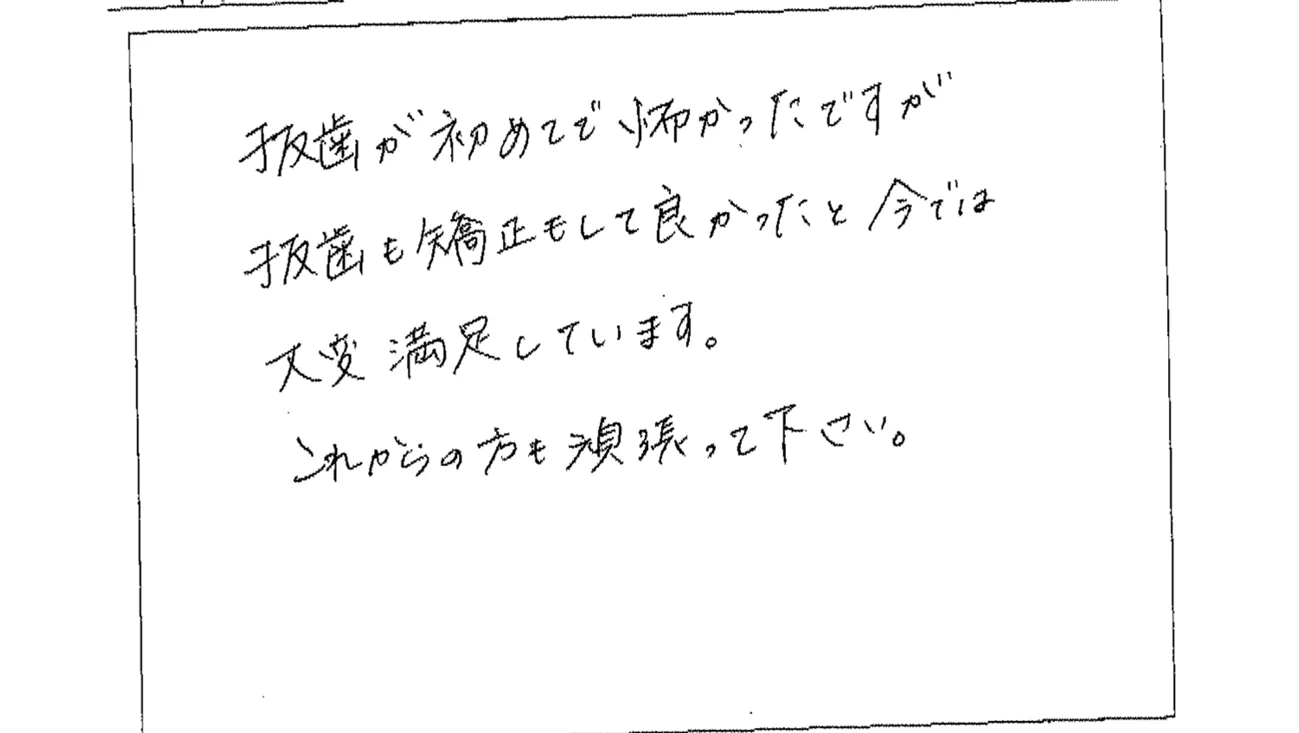 抜歯が初めてで怖かったですが
抜歯も矯正もして良かったと今では
大変満足しています。
これからの方も頑張って下さい。